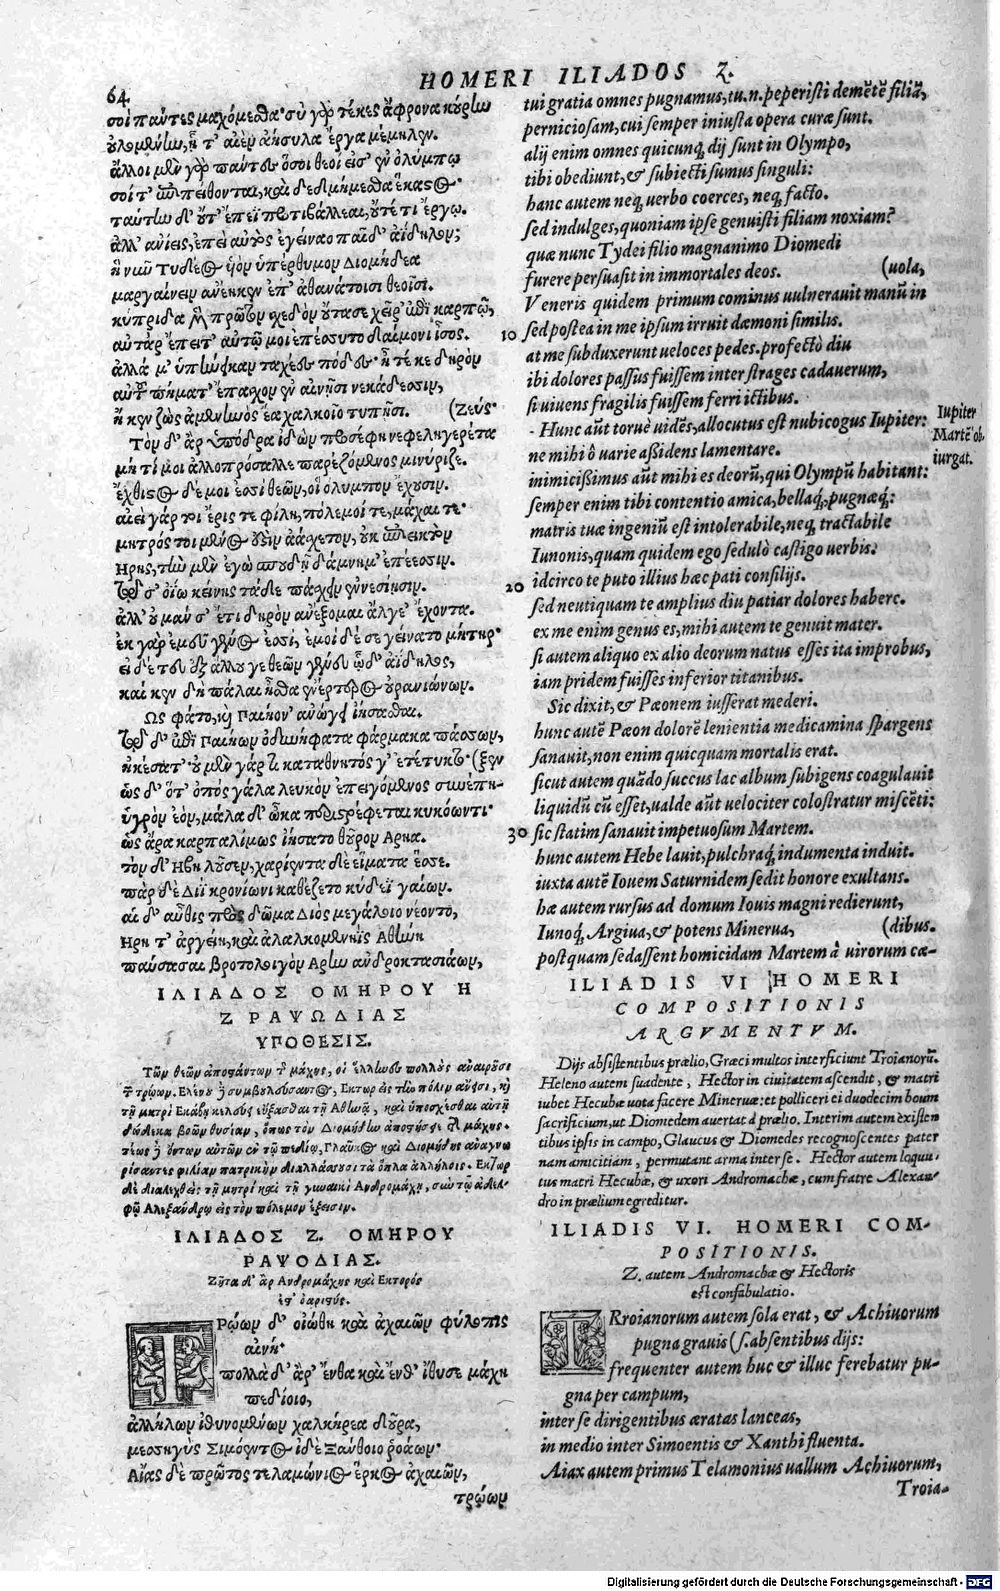 64
HOMERI ILIADOS Ζ.
σοὶ πάντες μαχόμεσθα· σὺ γὰρ τέκες ἄφρονα κούρην
οὐλομένην, ᾗ τ' αἰὲν ἀήσυλα ἔργα μέμηλεν.
ἄλλοι μὲν γὰρ πάντες ὅσοι θεοί εἰσ' ἐν ὀλύμπῳ
σοί τ' ἐπιπείθονται, καὶ δεδμήμεσθα ἕκαστος.
ταύτην δ' οὔτ' ἔπεϊ προτιβάλλεαι, οὔτέ τι ἔργῳ.
ἀλλ' ἀνιεῖς, ἐπεὶ αὐτὸς ἐγείναο παῖδ' ἀΐδηλον;
ἣ νῦν Τυδέος υἱὸν ὑπέρθυμον Διομήδεα
μαργαίνειν ἀνέηκεν ἐπ' ἀθανάτοισι θεοῖσι.
κύπριδα μὲν πρῶτον σχεδὸν οὔτασε χεῖρ' ἐπὶ καρπῷ,
αὐτὰρ ἔπειτ' αὐτῷ μοι ἐπέσσυτο δαίμονι ἶσος.
ἀλλά μ' ὑπήνεικαν ταχέες πόδες· ἦ τέ κε δηρὸν
αὐτοῦ πήματ' ἔπασχον ἐν αἰνῇσι νεκάδεσσιν,
ἤ κεν ζὼς ἀμενηνὸς ἔα χαλκοῖο τυπῇσι. (Ζεύς·
Τὸν δ' ἄρ' ὑπόδρα ἰδὼν προσέφη νεφεληγερέτα
μή τί μοι ἀλλοπρόσαλλε παρεζόμενος μινύριζε.
ἔχθιστος δέ μοι ἐσσὶ θεῶν, οἳ ὄλυμπον ἔχουσιν.
αἰεὶ γάρ τοι ἔρις τε φίλη, πόλεμοί τε, μάχαι τε·
μητρός τοι μένος ἐστὶν ἀάσχετον, οὐκ ἐπιεικτὸν
Ηρης, τὴν μὲν ἐγὼ σπουδῇ δάμνημ' ἐπέεσσιν.
τῷ σ' ὀΐω κείνης τάδε πάσχειν ἐννεσίῃσιν.
ἀλλ' οὐ μάν σ' ἔτι δηρὸν ἀνέξομαι ἄλγε' ἔχοντα.
ἐκ γὰρ ἐμοῦ γένος ἐσσὶ, ἐμοὶ δέ σε γείνατο μήτηρ·
εἰ δέ τευ ἐξ ἄλλου γε θεῶν γένευ ὧδ' ἀΐδηλος,
καί κεν δὴ πάλαι ἦσθα ἐνέρτερος οὐρανιώνων.
Ως φάτο, καὶ Παιήον' ἀνώγει ἰήσασθαι.
τῷ δ' ἐπὶ Παιήων ὀδυνήφατα φάρμακα πάσσων,
ἠκέσατ'· οὐ μὲν γάρ τι καταθνητός γ' ἐτέτυκτο· (ξεν
ὡς δ' ὅτ' ὀπὸς γάλα λευκὸν ἐπειγόμενος συνέπη-
ὑγρὸν ἐὸν, μάλα δ' ὦκα περιστρέφεται κυκόωντι·
ὣς ἄρα καρπαλίμως ἰήσατο θοῦρον Αρηα.
τὸν δ' Ηβη λοῦσεν, χαρίεντα δὲ εἵματα ἕσσε.
πὰρ δὲ Διῒ κρονίωνι καθέζετο κύδεϊ γαίων.
αἱ δ' αὖθις πρὸς δῶμα Διὸς μεγάλοιο νέοντο,
Ηρη τ' ἀργείη, καὶ ἀλαλκομενηῒς Αθήνη
παύσασαι βροτολοιγὸν Αρην ἀνδροκτασιάων,
ΙΛΙΑΔΟΣ ΟΜΗΡΟΥ Η
Ζ ΡΑΨΩΔΙΑΣ
ΥΠΟΘΕΣΙΣ.
Τῶν θεῶν ἀποστάντων τῆς μάχης, οἱ ἕλληνες πολλοὺς ἀναιροῦσι
τῶν τρώων. Ελένου δὲ συμβουλεύσαντος, Εκτωρ εἰς τὴν πόλιν ἄνεισι, καὶ
τῇ μητρὶ Εκάβῃ κελεύει εὔξασθαι τῇ Αθηνᾷ, καὶ ὑποσχέσθαι αὐτῇ
δώδεκα βοῶν θυσίαν, ὅπως τὸν Διομήδην ἀποστήσῃ τῆς μάχης·
τέως δὲ ὄντων αὐτῶν ἐν τῷ πεδίῳ, Γλαῦκος καὶ Διομήδης ἀναγνω
ρίσαντες φιλίαν πατρικὴν διαλλάσσουσι τὰ ὅπλα ἀλλήλοις. Εκτωρ
δὲ διαλεχθεὶς τῇ μητρὶ καὶ τῇ γυναικὶ Ανδρομάχῃ, σὺν τῷ ἀδελ-
φῷ Αλεξάνδρῳ εἰς τὸν πόλεμον ἔξεισιν.
ΙΛΙΑΔΟΣ Ζ. ΟΜΗΡΟΥ
ΡΑΨΟΔΙΑΣ.
Ζῆτα δ' ἄρ' Ανδρομάχης καὶ Εκτορός
ἐστ' ὀαριστύς.
ΤΡώων δ' οἰώθη καὶ ἀχαιῶν φύλοπις
αἰνή·
πολλὰ δ' ἄρ' ἔνθα καὶ ἔνθ' ἴθυσε μάχη
πεδίοιο,
ἀλλήλων ἰθυνομένων χαλκήρεα δοῦρα,
μεσσηγὺς Σιμόεντος ἰδὲ Ξάνθοιο ῥοάων·
Αἴας δὲ πρῶτος τελαμώνιος ἕρκος ἀχαιῶν,
τρώων
tui gratia omnes pugnamus, tu.n.peperisti demẽtẽ filiã,
perniciosam, cui semper iniusta opera curæ sunt.
alij enim omnes quicunq; dij sunt in Olympo,
tibi obediunt, & subiecti sumus singuli:
hanc autem neq; uerbo coerces, neq; facto.
sed indulges, quoniam ipse genuisti filiam noxiam?
quæ nunc Tydei filio magnanimo Diomedi
furere persuasit in immortales deos. (uola,
Veneris quidem primum cominus uulnerauit manũ in
10 sed postea in me ipsum irruit dæmoni similis.
at me subduxerunt ueloces pedes. profectò diu
ibi dolores passus fuissem inter strages cadauerum,
si uiuens fragilis fuissem ferri ictibus.
- Hunc aũt toruè uidẽs, allocutus est nubicogus Iupiter:
ne mihi ô uarie assidens lamentare.
inimicissimus aũt mihi es deorũ, qui Olympũ habitant:
semper enim tibi contentio amica, bellaq;, pugnæq;:
matris tuæ ingeniũ est intolerabile, neq; tractabile
Iunonis, quam quidem ego sedulò castigo uerbis.
20 idcirco te puto illius hæc pati consilijs.
sed neutiquam te amplius diu patiar dolores habere.
ex me enim genus es, mihi autem te genuit mater.
si autem aliquo ex alio deorum natus esses ita improbus,
iam pridem fuisses inferior titanibus.
Sic dixit, & Pæonem iusserat mederi.
hunc autẽ Pæon dolorẽ lenientia medicamina spargens
sanauit, non enim quicquam mortalis erat.
sicut autem quãdo succus lac album subigens coagulauit
liquidũ cũ esset, ualde aũt uelociter colostratur miscẽti:
30 sic statim sanauit impetuosum Martem.
hunc autem Hebe lauit, pulchraq; indumenta induit.
iuxta autẽ Iouem Saturnidem sedit honore exultans.
hæ autem rursus ad domum Iouis magni redierunt,
Iunoq; Argiua, & potens Minerua, (dibus.
postquam sedassent homicidam Martem à uirorum cæ-
Iupiter
Martẽ ob-
iurgat.
ILIADIS VI HOMERI
COMPOSITIONIS
ARGVMENTVM.
Dijs absistentibus prælio, Græci multos interficiunt Troianorũ.
Heleno autem suadente, Hector in ciuitatem ascendit, & matri
iubet Hecubæ uota facere Mineruæ: et polliceri ei duodecim boum
sacrificium, ut Diomedem auertat à prælio. Interim autem existen
tibus ipsis in campo, Glaucus & Diomedes recognoscentes pater
nam amicitiam, permutant arma inter se. Hector autem loquu-
tus matri Hecubæ, & uxori Andromachæ, cum fratre Alexan-
dro in prælium egreditur.
ILIADIS VI. HOMERI COM-
POSITIONIS.
Z. autem Andromachæ & Hectoris
est confabulatio.
TRroianorum autem sola erat, & Achiuorum
pugna grauis (s. absentibus dijs:
frequenter autem huc & illuc ferebatur pu-
gna per campum,
inter se dirigentibus æratas lanceas,
in medio inter Simoentis & Xanthi fluenta.
Aiax autem primus Telamonius uallum Achiuorum,
Troia-
Digitalisierung gefördert durch die Deutsche Forschungsgemeinschaft - DFG